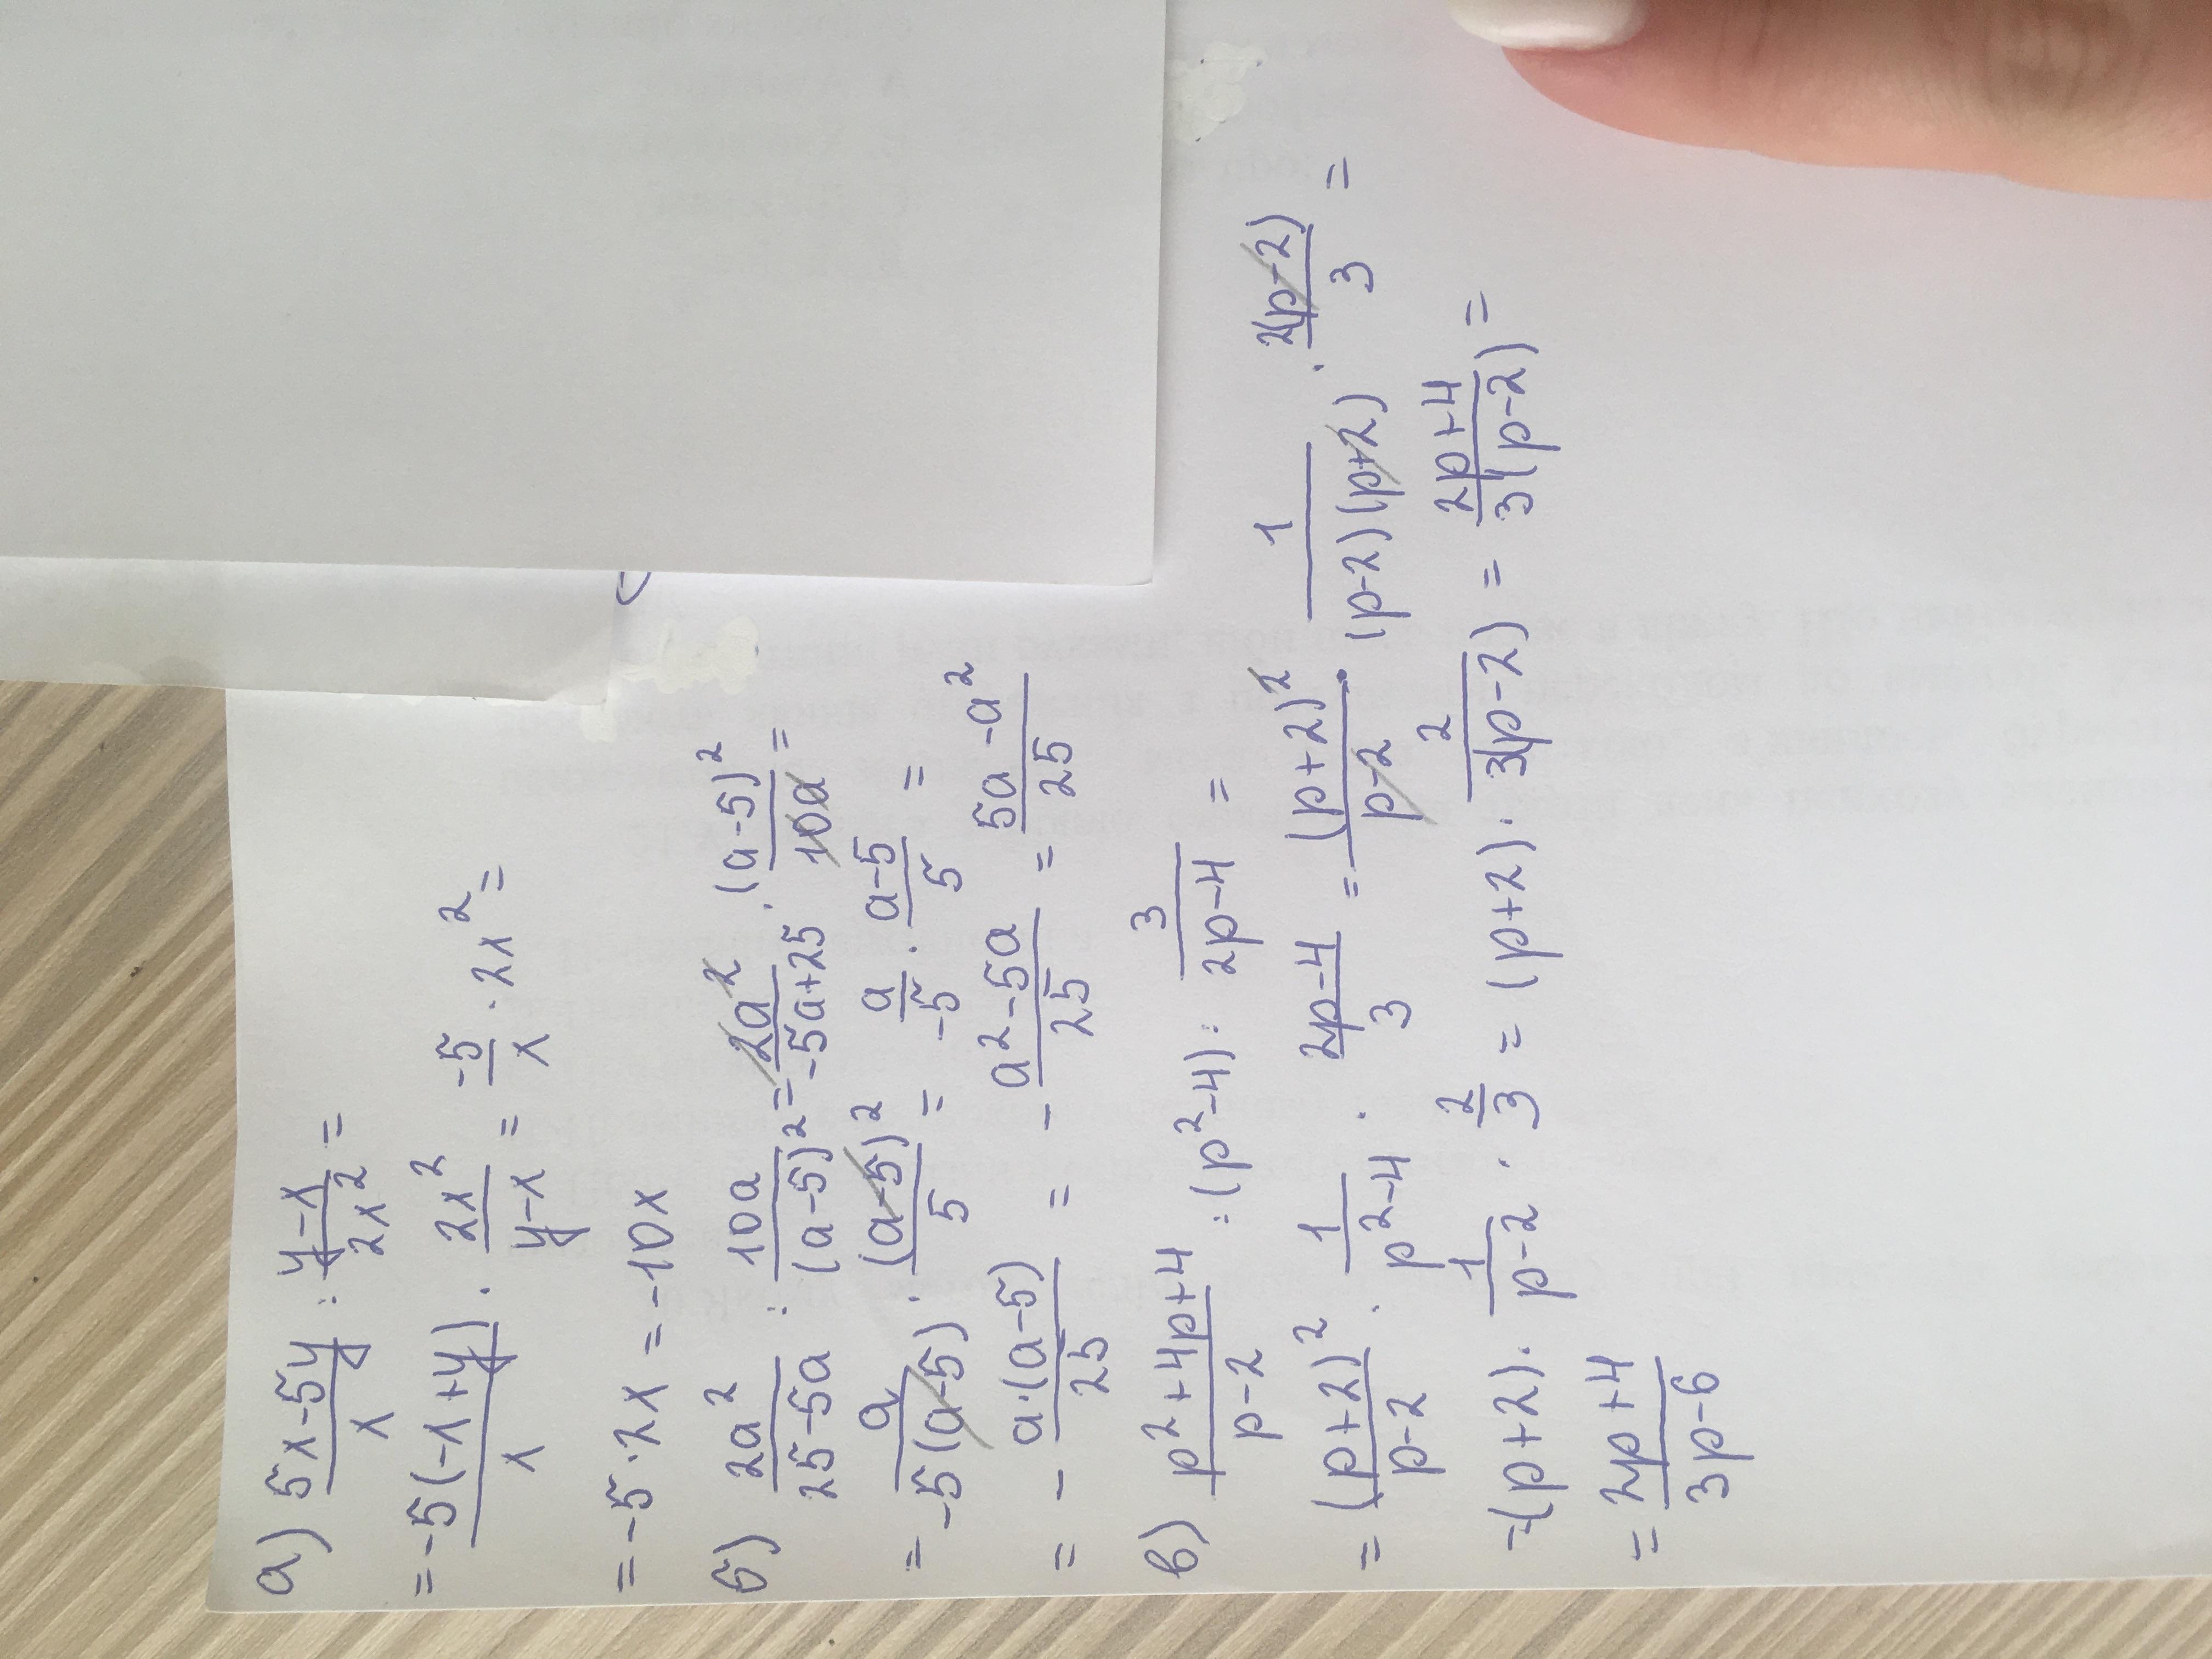 а) (5x-5y)/x : (y-x)/(2x²) =
= (-5(-x+y))/x · (2x²)/(y-x) = (-5)/x · 2x² =
= -5·2x = -10x
б) (2a²)/(25-5a) : (10a)/((a-5)²) = (2a²)/(-5a+25) · ((a-5)²)/(10a) =
= a/(-5(a-5)) · ((a-5)²)/5 = a/(-5) · (a-5)/5 =
= - (a·(a-5))/25 = - (a²-5a)/25 = (5a-a²)/25
в) (p²+4p+4)/(p-2) : (p²-4) : 3/(2p-4) =
= ((p+2)²)/(p-2) · 1/(p²-4) · (2p-4)/3 = ((p+2)²)/(p-2) · 1/((p-2)(p+2)) · (2(p-2))/3 =
=(p+2) · 1/(p-2) · 2/3 = (p+2) · 2/(3(p-2)) = (2p+4)/(3(p-2)) =
= (2p+4)/(3p-6)